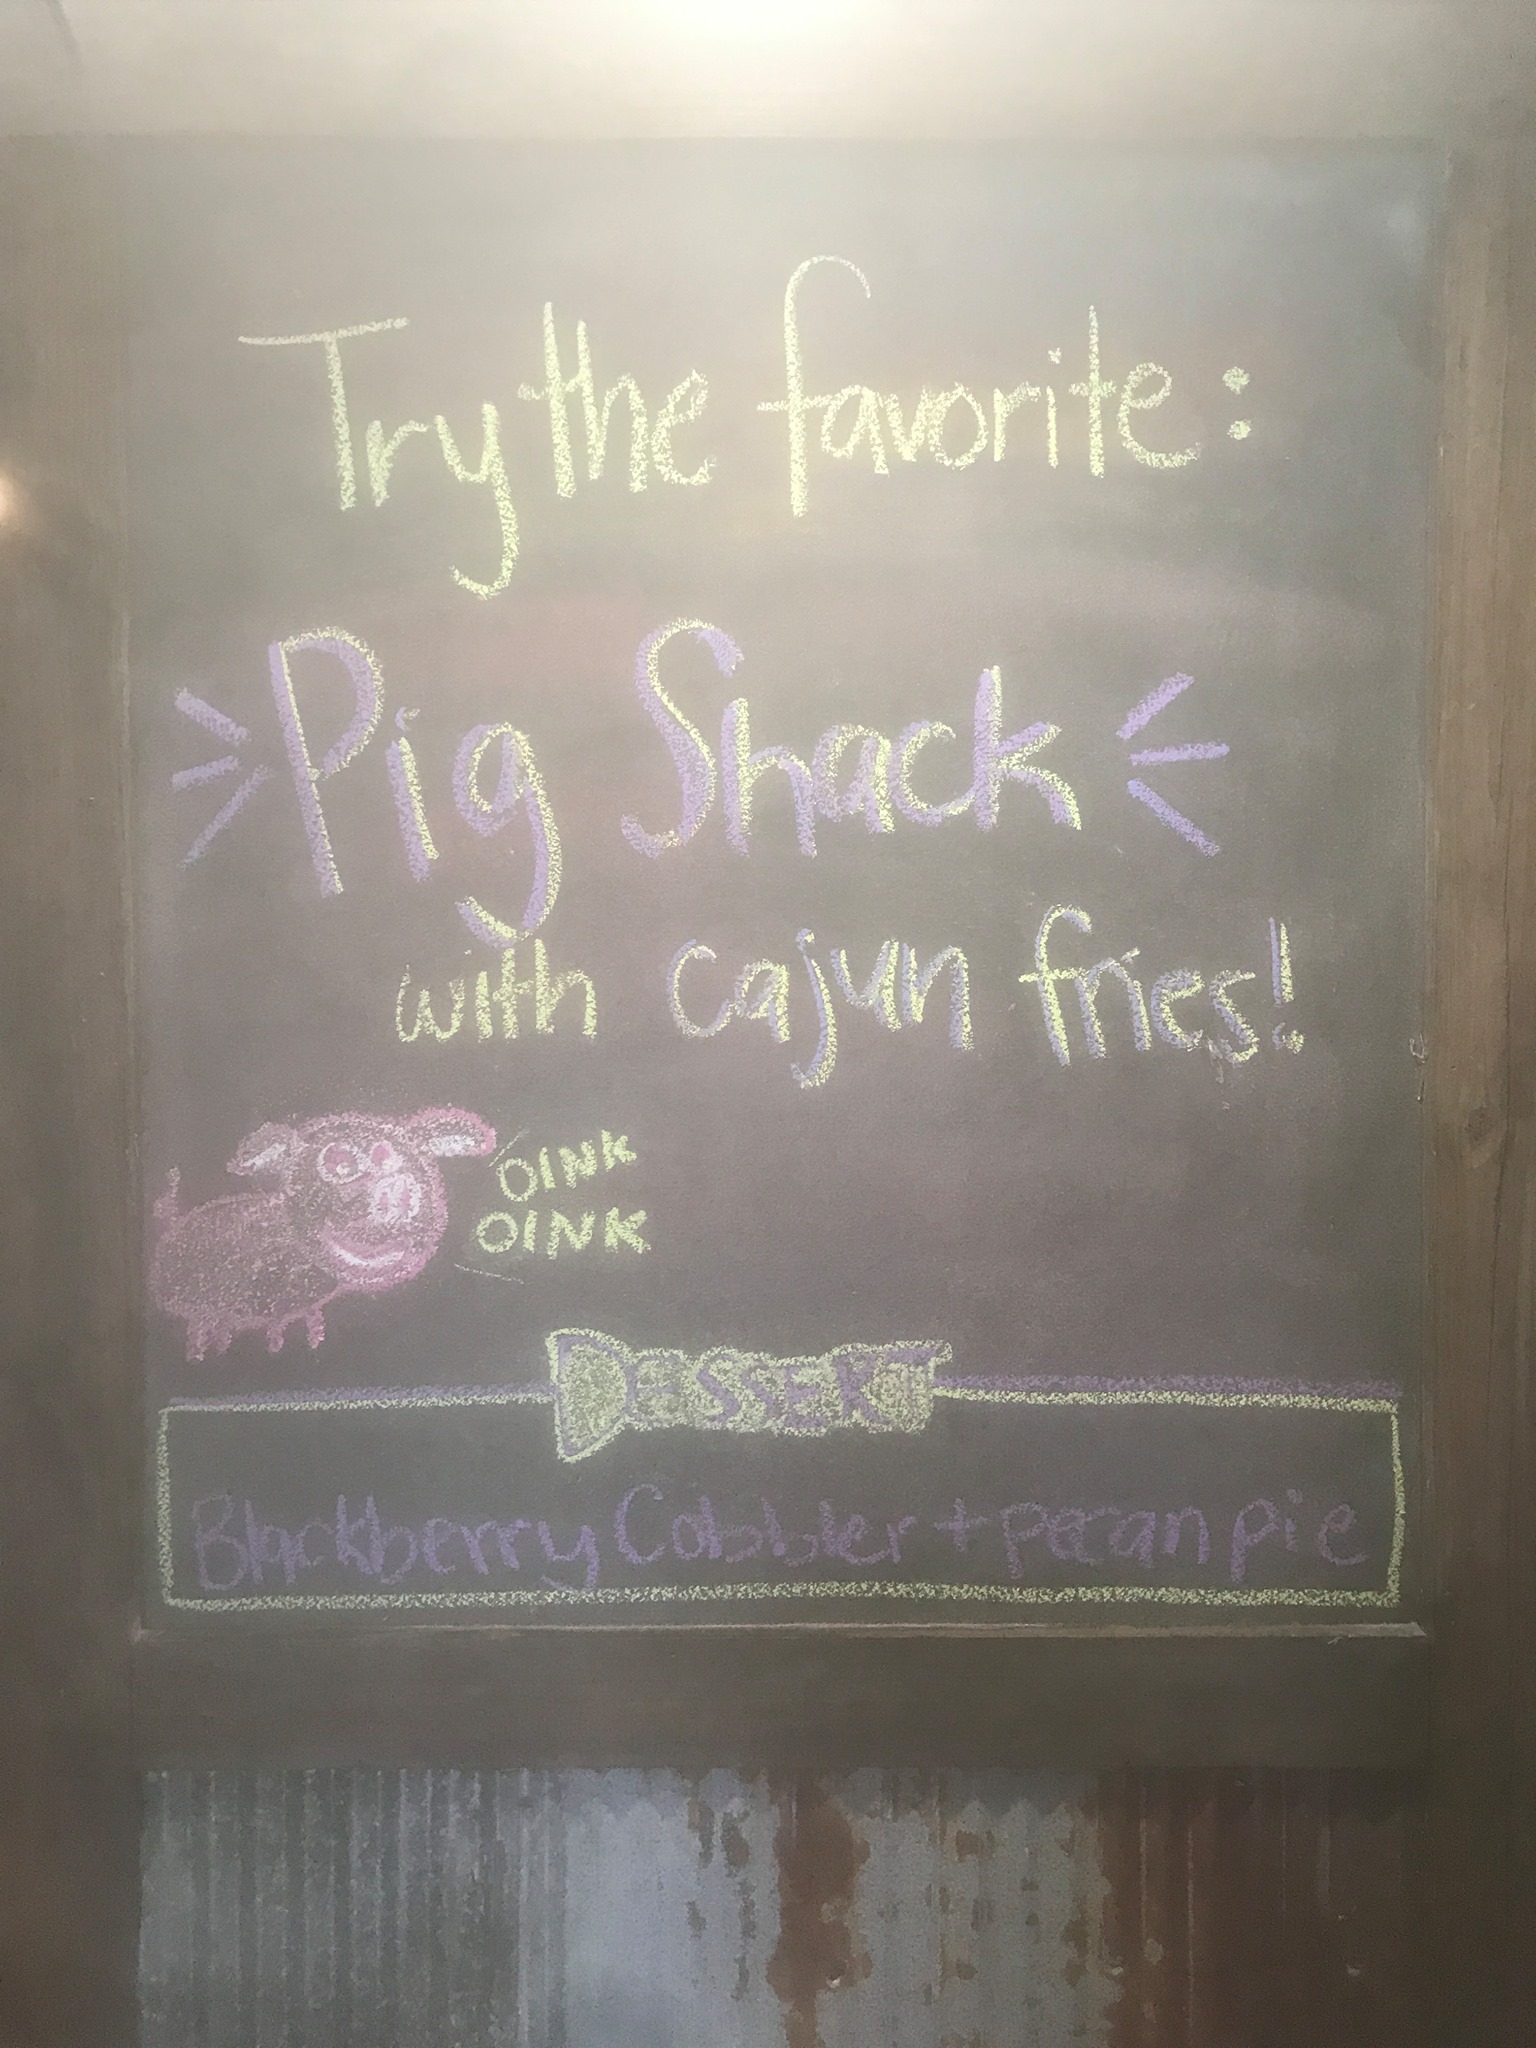 Try the favorite:
Pig Shack
with cajun fries!
OINK
OINK
DESSERT
Blackberry Cobbler + pecan pie